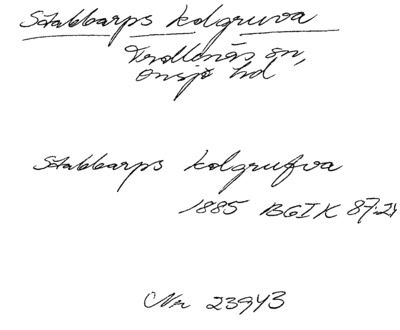 Stabbarps kolgruva
Trollenäs sn,
Onsjö hd
Stabbarps kolgrufva
1885 BGIK 87:24
Nr 23943